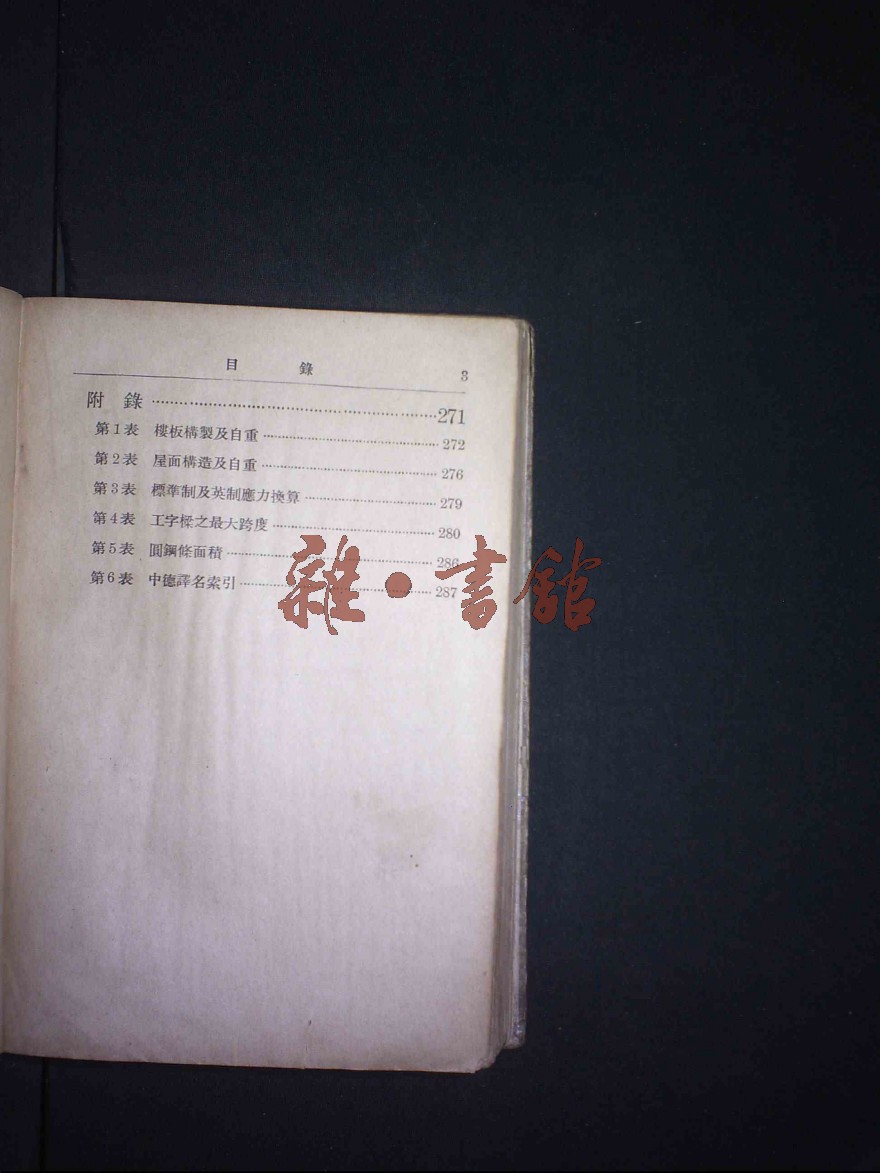 目錄 3
附錄 271
第1表 樓板構製及自重 272
第2表 屋面構造及自重 276
第3表 標準制及英制應力換算 279
第4表 工字樑之最大跨度 280
第5表 圓鋼條面積 286
第6表 中德譯名索引 287
雜·書館